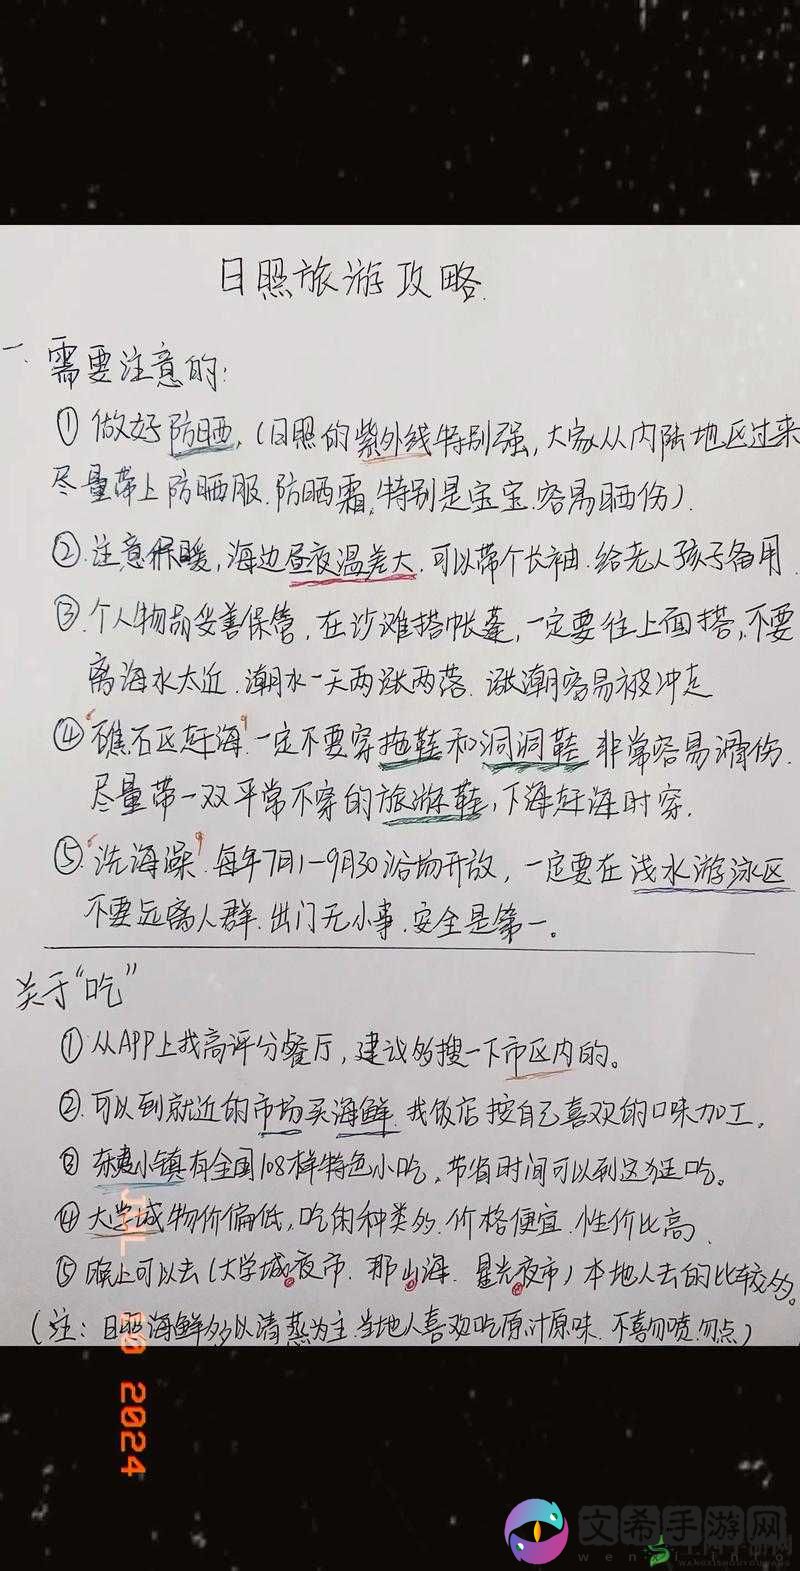 日照旅游攻略.
一. 需要注意的:
① 做好防晒,(日照的紫外线特别强,大家从内陆地区过来
尽量带上防晒服.防晒霜,特别是宝宝.容易晒伤).
②.注意保暖,海边昼夜温差大,可以带个长袖.给老人孩子备用.
③.个人物品妥善保管,在沙滩搭帐蓬,一定要往上面搭,不要
离海水太近.潮水一天两涨两落.涨潮容易被冲走
④“礁石区赶海”一定不要穿拖鞋和洞洞鞋 非常容易滑伤.
尽量带一双平常不穿的旅游鞋,下海赶海时穿.
⑤“洗海澡”每年7月1-9月30浴场开放,一定要在浅水游泳区
不要远离人群.出门无小事.安全是第一。
关于“吃”
①从APP上找高评分餐厅,建议多搜一下市区内的。
②.可以到就近的市场买海鲜.找饭店按自己喜欢的口味加工。
③ 东夷小镇有全国108样特色小吃,节省时间可以到这逛吃。
④大学城物价偏低,吃的种类多.价格便宜.性价比高.
⑤晚上可以去(大学城夜市.那山海.星光夜市)本地人去的比较多。
(注:日照海鲜多以清蒸为主.当地人喜欢吃原汁原味.不喜勿喷.勿点)
2024
文希手游网